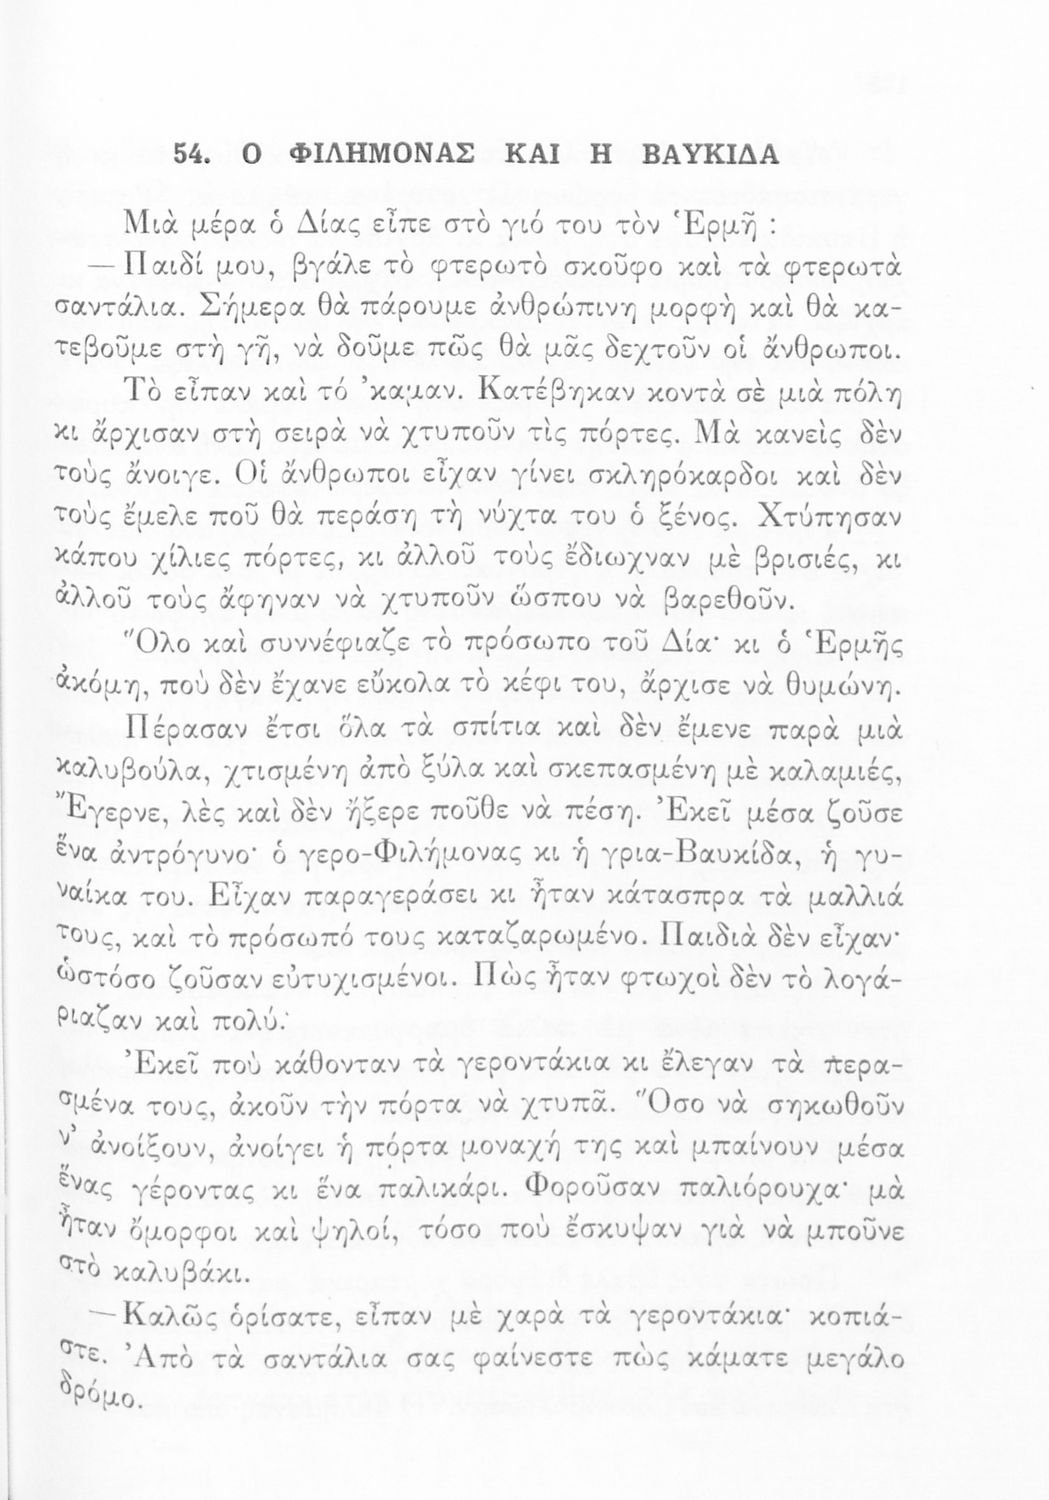 54. Ο ΦΙΛΗΜΟΝΑΣ ΚΑΙ Η ΒΑΥΚΙΔΑ
Μιὰ μέρα ὁ Δίας εἶπε στὸ γιό του τὸν Ἑρμῆ :
— Παιδί μου, βγάλε τὸ φτερωτὸ σκοῦφο καὶ τὰ φτερωτὰ
σαντάλια. Σήμερα θὰ πάρουμε ἀνθρώπινη μορφὴ καὶ θὰ κα-
τεβοῦμε στὴ γῆ, νὰ δοῦμε πῶς θὰ μᾶς δεχτοῦν οἱ ἄνθρωποι.
Τὸ εἶπαν καὶ τό ’καμαν. Κατέβηκαν κοντὰ σὲ μιὰ πόλη
κι ἄρχισαν στὴ σειρὰ νὰ χτυποῦν τὶς πόρτες. Μὰ κανεὶς δὲν
τοὺς ἄνοιγε. Οἱ ἄνθρωποι εἶχαν γίνει σκληρόκαρδοι καὶ δὲν
τοὺς ἔμελε ποῦ θὰ περάση τὴ νύχτα του ὁ ξένος. Χτύπησαν
κάπου χίλιες πόρτες, κι ἀλλοῦ τοὺς ἔδιωχναν μὲ βρισιές, κι
ἀλλοῦ τοὺς ἄφηναν νὰ χτυποῦν ὥσπου νὰ βαρεθοῦν.
Ὅλο καὶ συννέφιαζε τὸ πρόσωπο τοῦ Δία· κι ὁ Ἑρμῆς
ἀκόμη, ποὺ δὲν ἔχανε εὔκολα τὸ κέφι του, ἄρχισε νὰ θυμώνη.
Πέρασαν ἔτσι ὅλα τὰ σπίτια καὶ δὲν ἔμενε παρὰ μιὰ
καλυβούλα, χτισμένη ἀπὸ ξύλα καὶ σκεπασμένη μὲ καλαμιές,
Ἔγερνε, λὲς καὶ δὲν ἤξερε ποῦθε νὰ πέση. Ἐκεῖ μέσα ζοῦσε
ἕνα ἀντρόγυνο· ὁ γερο-Φιλήμονας κι ἡ γρια-Βαυκίδα, ἡ γυ-
ναίκα του. Εἶχαν παραγεράσει κι ἦταν κάτασπρα τὰ μαλλιά
τους, καὶ τὸ πρόσωπό τους καταζαρωμένο. Παιδιὰ δὲν εἶχαν·
ὡστόσο ζοῦσαν εὐτυχισμένοι. Πὼς ἦταν φτωχοὶ δὲν τὸ λογά-
ριαζαν καὶ πολύ.
Ἐκεῖ ποὺ κάθονταν τὰ γεροντάκια κι ἔλεγαν τὰ περα-
σμένα τους, ἀκοῦν τὴν πόρτα νὰ χτυπᾶ. Ὅσο νὰ σηκωθοῦν
ν’ ἀνοίξουν, ἀνοίγει ἡ πόρτα μοναχή της καὶ μπαίνουν μέσα
ἕνας γέροντας κι ἕνα παλικάρι. Φοροῦσαν παλιόρουχα· μὰ
ἦταν ὄμορφοι καὶ ψηλοί, τόσο ποὺ ἔσκυψαν γιὰ νὰ μποῦνε
στὸ καλυβάκι.
— Καλῶς ὁρίσατε, εἶπαν μὲ χαρὰ τὰ γεροντάκια· κοπιά-
στε. Ἀπὸ τὰ σαντάλια σας φαίνεστε πὼς κάματε μεγάλο
δρόμο.